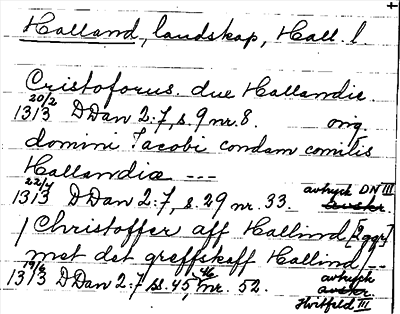 Halland, landskap, Hall. l.
Cristoforus due Hallandie.
13 20/2 13 DDan 2:7, s. 9 nr. 8. orig.
domini Jacobi condam comitis
Hallandia ---
13 22/7 13 DDan 2:7, s. 29 nr. 33. avtryck DN III
Christoffer aff Hallind [2ggr]
met det greffskaff Hallind ---
13 19/8 13 DDan 2:7 ss. 45, 46 nr. 52. avtryck
avskr.
Hvitfeld III